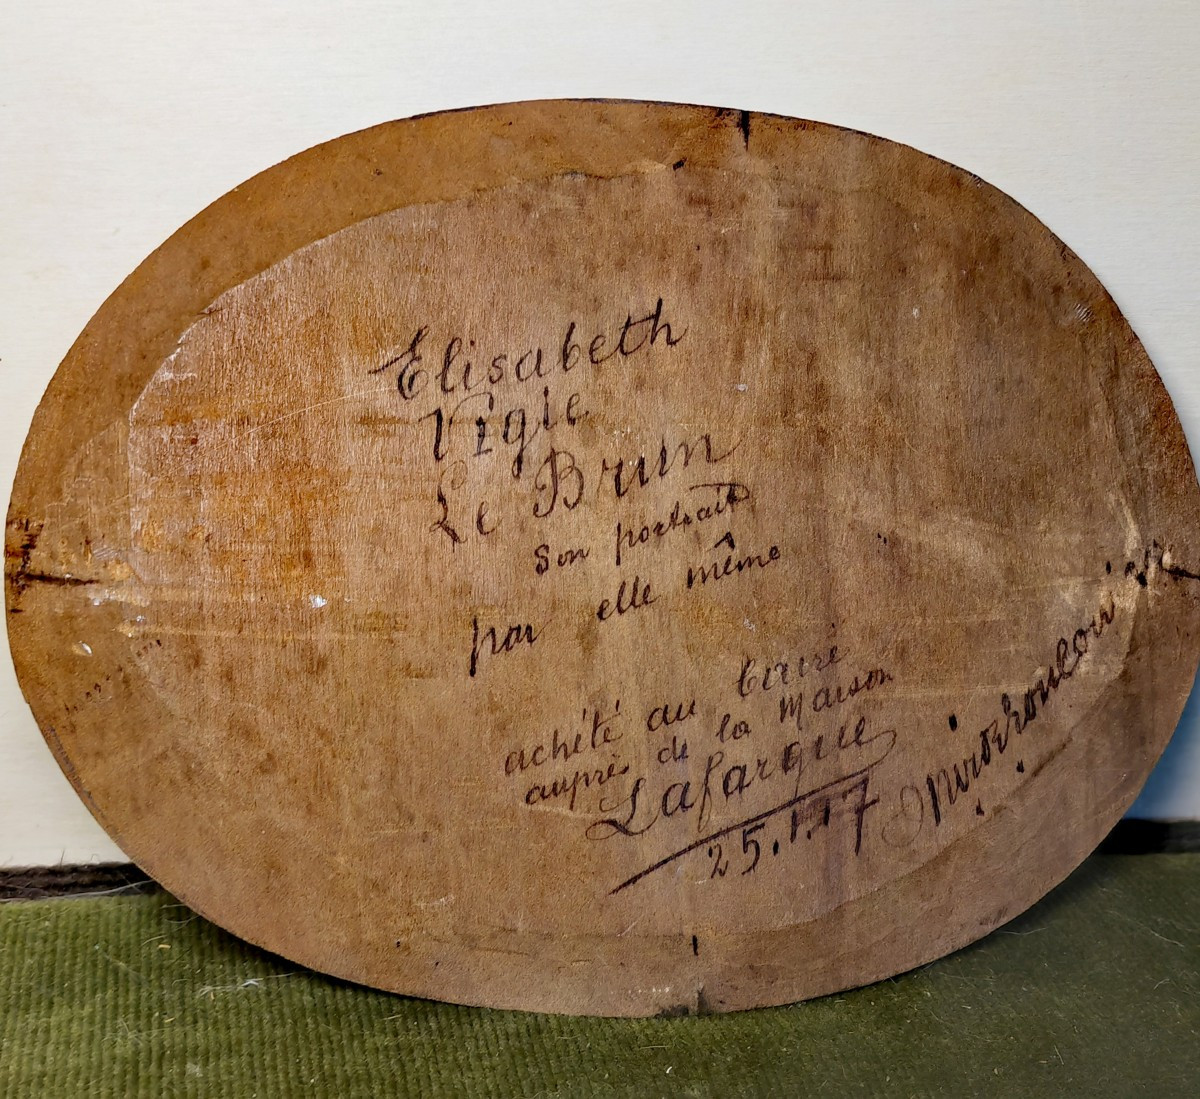 Elisabeth
Vigie
Le Brun
son portrait
par elle même
achété au
auprès de la Maison
Lafargue
25.1.17